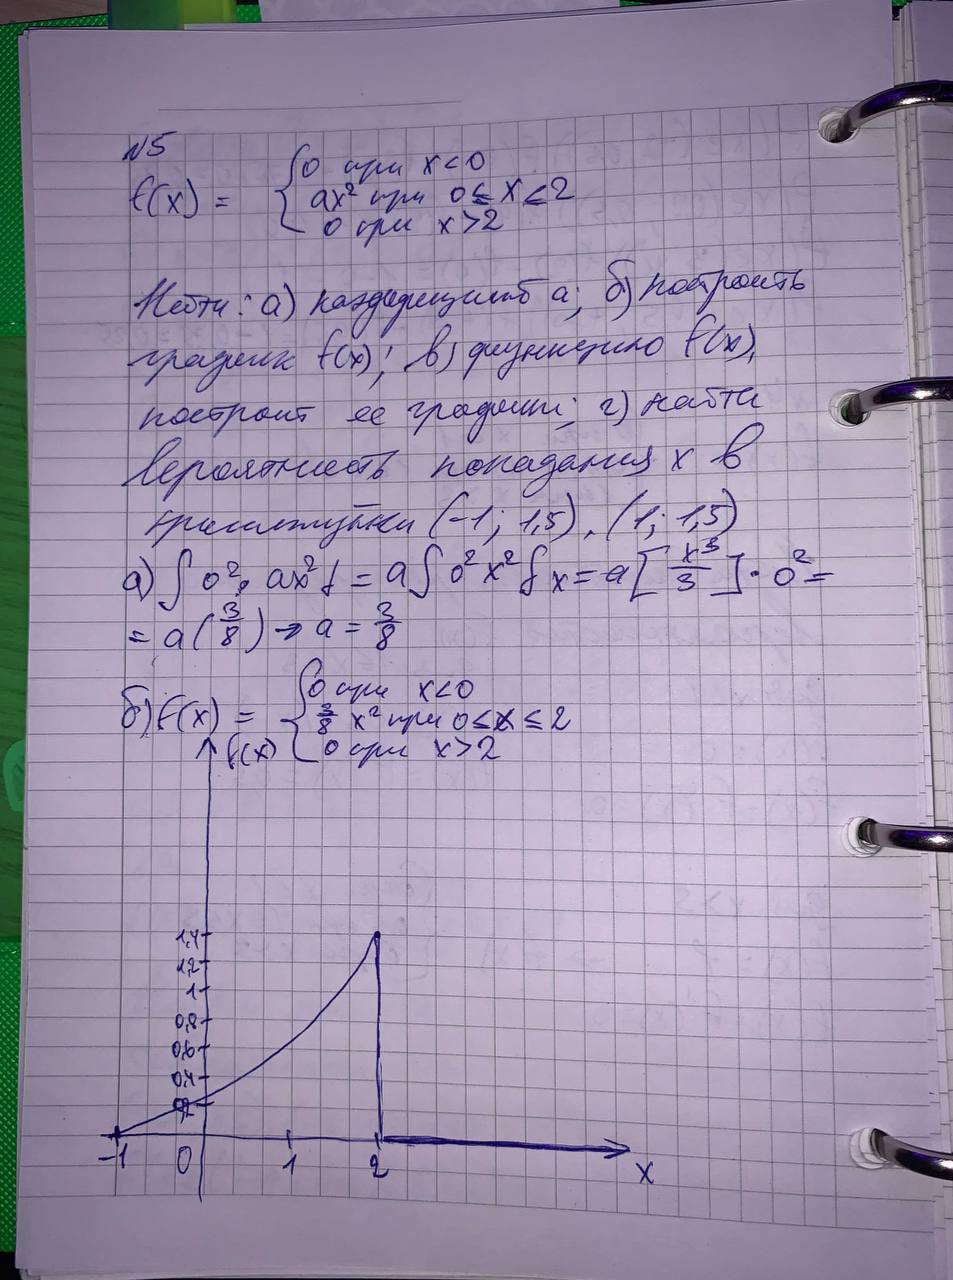 №5
f(x) = { 0 при x<0
ax² при 0≤x≤2
0 при x>2
Найти: а) коэффициент a; б) построить
график f(x); в) функцию F(x),
построит ее график; г) найти
вероятность попадания x в
промежутки (-1; 1,5), (1; 1,5)
а) ∫0², ax² f = a∫0² x² f x = a[x³/3]·0² =
= a(3/8) → a = 3/8
б) f(x) = { 0 при x<0
3/8 x² при 0≤x≤2
0 при x>2
f(x)
1,4
1,2
1
0,8
0,6
0,4
0,2
-1 0 1 2 x